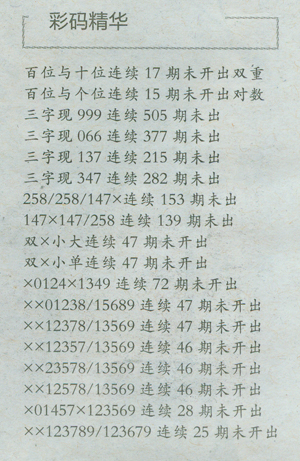 彩码精华
百位与十位连续 17 期未开出双重
百位与个位连续 15 期未开出对数
三字现 999 连续 505 期未出
三字现 066 连续 377 期未出
三字现 137 连续 215 期未出
三字现 347 连续 282 期未出
258/258/147×连续 153 期未出
147×147/258 连续 139 期未出
双×小大连续 47 期未开出
双×小单连续 47 期未开出
×0124×1349 连续 72 期未开出
××01238/15689 连续 47 期未开出
××12378/13569 连续 47 期未开出
××12357/13569 连续 46 期未开出
××23578/13569 连续 46 期未开出
××12578/13569 连续 46 期未开出
×01457×123569 连续 28 期未开出
××123789/123679 连续 25 期未开出